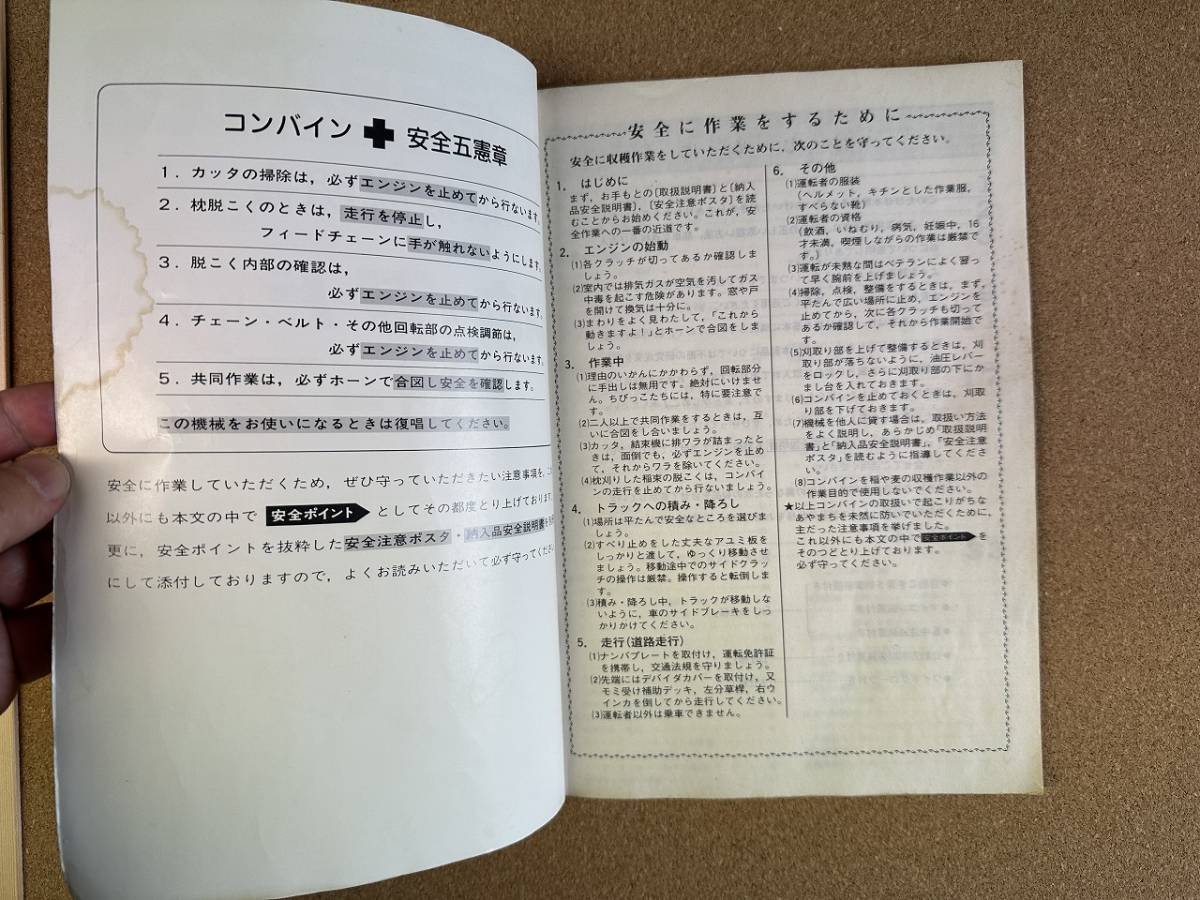 コンバイン✚安全五憲章
1．カッタの掃除は，必ずエンジンを止めてから行ないます。
2．枕脱こくのときは，走行を停止し，
フィードチェーンに手が触れないようにします。
3．脱こく内部の確認は，
必ずエンジンを止めてから行ないます。
4．チェーン・ベルト・その他回転部の点検調節は，
必ずエンジンを止めてから行ないます。
5．共同作業は，必ずホーンで合図し安全を確認します。
この機械をお使いになるときは復唱してください。
安全に作業していただくため，ぜひ守っていただきたい注意事項を，
以外にも本文の中で 安全ポイント としてその都度とり上げております。
更に，安全ポイントを抜粋した安全注意ポスタ・納入品安全説明書を
にして添付しておりますので，よくお読みいただいて必ず守ってください
安全に作業をするために
安全に収穫作業をしていただくために，次のことを守ってください。
1． はじめに
まず，お手もとの〔取扱説明書〕と〔納入
品安全説明書〕，〔安全注意ポスタ〕を読
むことからお始めください。これが，安
全作業への一番の近道です。
2． エンジンの始動
(1)各クラッチが切ってあるか確認しま
しょう。
(2)室内では排気ガスが空気を汚してガス
中毒を起こす危険があります。窓や戸
を開けて換気は十分に。
(3)まわりをよく見わたして，「これから
動きますよ！」とホーンで合図をしま
しょう。
3． 作業中
(1)理由のいかんにかかわらず，回転部分
に手出しは無用です。絶対にいけませ
ん。ちびっこたちには，特に要注意で
す。
(2)二人以上で共同作業をするときは，互
いに合図をし合いましょう。
(3)カッタ，結束機に排ワラが詰まったと
きは，面倒でも，必ずエンジンを止め
て，それからワラを除いてください。
(4)枕刈りした稲束の脱こくは，コンバイ
ンの走行を止めてから行ないましょう。
4． トラックへの積み・降ろし
(1)場所は平たんで安全なところを選びま
しょう。
(2)すべり止めをした丈夫なアユミ板を
しっかりと渡して，ゆっくり移動させ
ましょう。移動途中でのサイドクラッ
チの操作は厳禁。操作すると転倒しま
す。
(3)積み・降ろし中，トラックが移動しな
いように，車のサイドブレーキをしっ
かりかけてください。
5． 走行(道路走行)
(1)ナンバプレートを取付け，運転免許証
を携帯し，交通法規を守りましょう。
(2)先端にはデバイダカバーを取付け，又
モミ受け補助デッキ，左分草桿，右ウ
インカを倒してから走行してください。
(3)運転者以外は乗車できません。
6． その他
(1)運転者の服装
（ヘルメット，キチンとした作業服，
すべらない靴）
(2)運転者の資格
（飲酒，いねむり，病気，妊娠中，16
才未満，喫煙しながらの作業は厳禁で
す。）
(3)運転が未熟な間はベテランによく習っ
て早く腕前を上げましょう。
(4)掃除，点検，整備をするときは，まず，
平たんで広い場所に止め，エンジンを
止めてから，次に各クラッチも切って
あるか確認して，それから作業開始で
す。
(5)刈取り部を上げて整備するときは，刈
取り部が落ちないように，油圧レバー
をロックし，さらに刈取り部の下にか
まし台を入れておきます。
(6)コンバインを止めておくときは，刈取
り部を下げておきます。
(7)機械を他人に貸す場合は，取扱い方法
をよく説明し，あらかじめ「取扱説明
書」と「納入品安全説明書」，「安全注意
ポスタ」を読むように指導してくださ
い。
(8)コンバインを稲や麦の収穫作業以外の
作業目的で使用しないでください。
★以上コンバインの取扱いで起こりがちな
あやまちを未然に防いでいただくために，
主だった注意事項を挙げました。
これ以外にも本文の中で 安全ポイント を
そのつどとり上げております。
必ず守ってください。